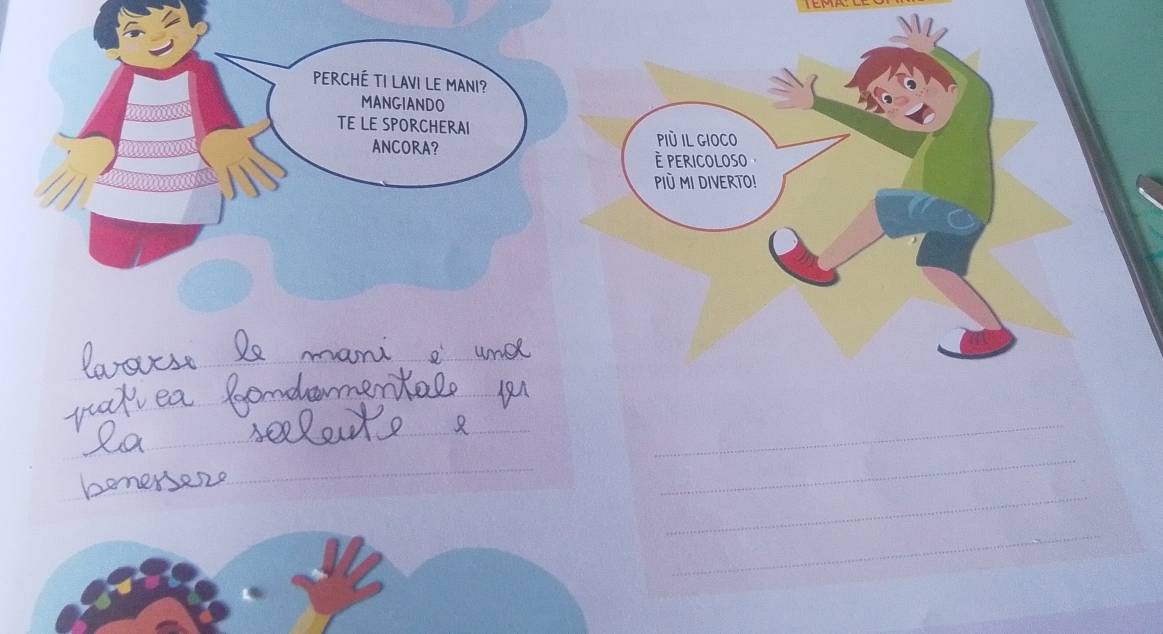 PERCHÉ TI LAVI LE MANI?
MANGIANDO
TE LE SPORCHERAI
ANCORA?
PIÙ IL GIOCO
È PERICOLOSO
PIÙ MI DIVERTO!
Lavarsi le mani è una
pratica fondamentale per
la salute e
benessere